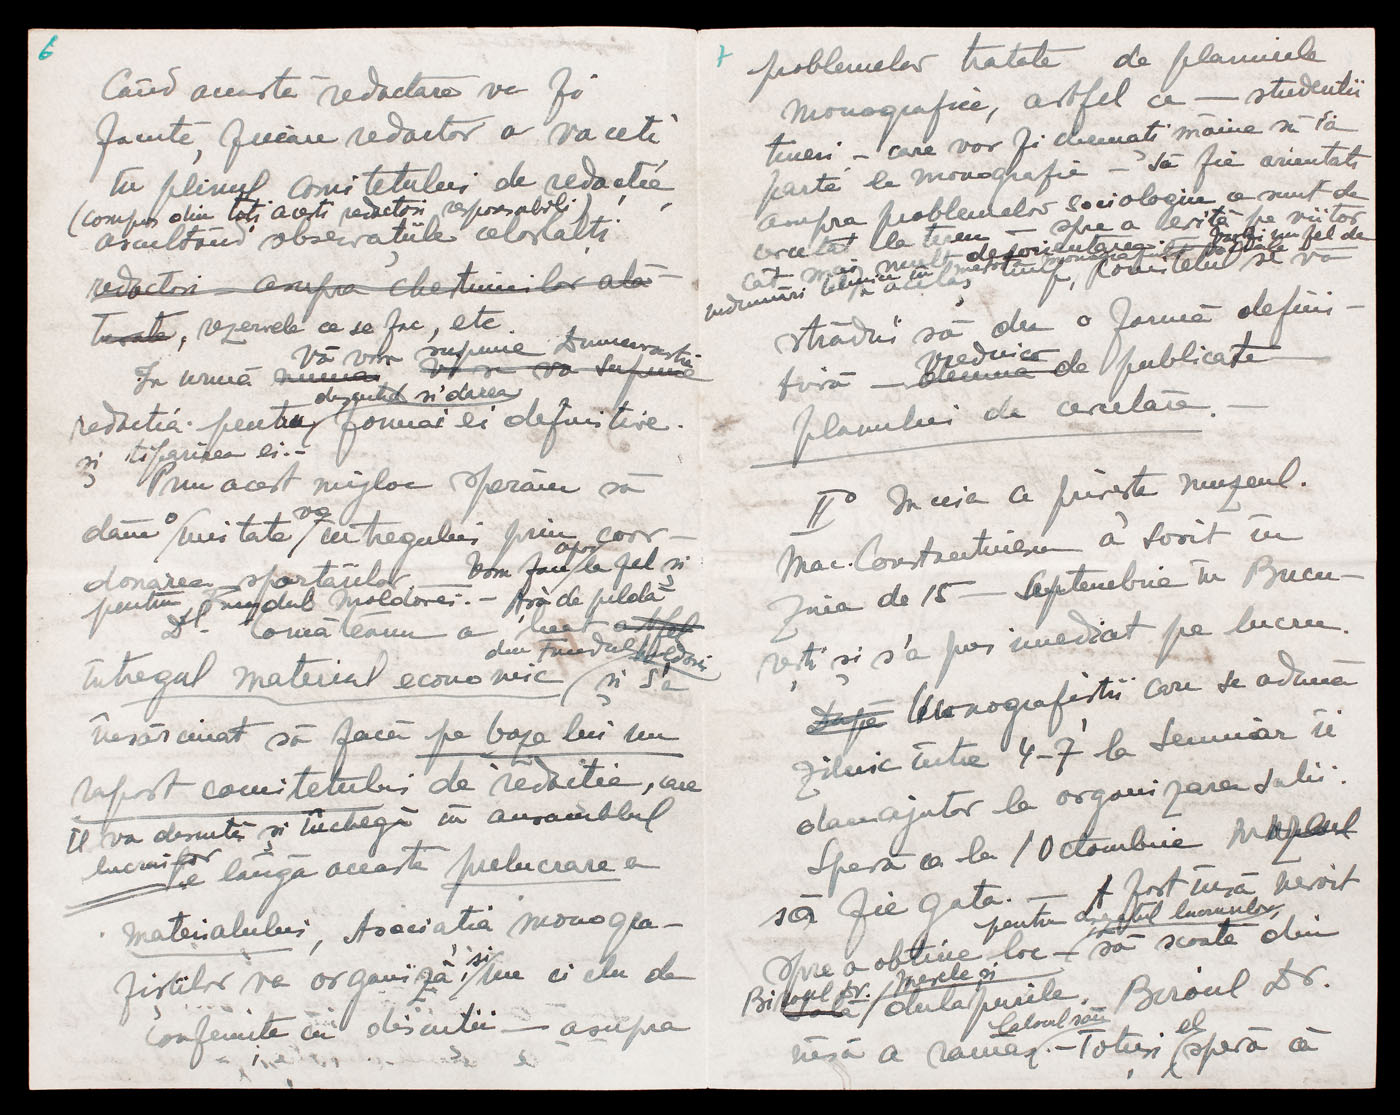 6
Când aceasta redactare va fi
facută, fiecare redactor o va ceti
în plinul comitetului de redacție,
(compus din toți acești redactori responsabili)
ascultând observațiile celorlalți
redactori – asupra chestiunilor ală-
turate, rezervele ce se fac, etc.
Vă vom supune Dumneavoastră
In urmă numai va supune
desăvârșirea
redacția pentru formei ei definitive.
și tipărirea ei.-
Prin acest mijloc sperăm să
dăm o unitate întregului prin coor-
donarea sforțărilor. Vom face apoi la fel și
pentru Fundul Moldovei. - Așa de pildă
Dl. Cornățeanu a luat astfel
din Fundul Moldovei
întregul material economic și s'a
însărcinat să facă pe baza lui un
raport comitetului de redacție, care
îl va discuta și închegà în ansamblul
lucrărilor
Pe lângă aceasta prelucrare a
materialului, Asociația monogra-
fiștilor va organiza și un ciclu de
conferințe cu discuții – asupra
7
problemelor tratate de planurile
monografice, astfel ca – studenții
tineri – care vor fi chemați mâine să ia
parte la monografie – să fie orientați
asupra problemelor sociologice ce sunt de
cercetat la teren – spre a evita pe viitor
cât mai mult desorientarea
îndrumări tehnice în acelaș timp, comitetul se va
strădui să dea o formă defini-
tivă – vrednică de publicat –
planului de cercetare. –
II° In ceia ce privește muzeul.
Mac. Constantinescu a sosit în
ziua de 15 – Septembrie în Bucu-
rești și s'a pus imediat pe lucru.
După Monografiștii care se adună
zilnic între 4-7 la Seminar îi
dau ajutor la organizarea salii.
Speră ca la 1 Octombrie
să fie gata. – A fost însă nevoit
pentru așezatul lucrurilor,
spre a obține loc – să scoată din
Biroul Dr. mesele și
Sala dulapurile. Biroul Dr.
însă a rămas. – Totuși el speră că